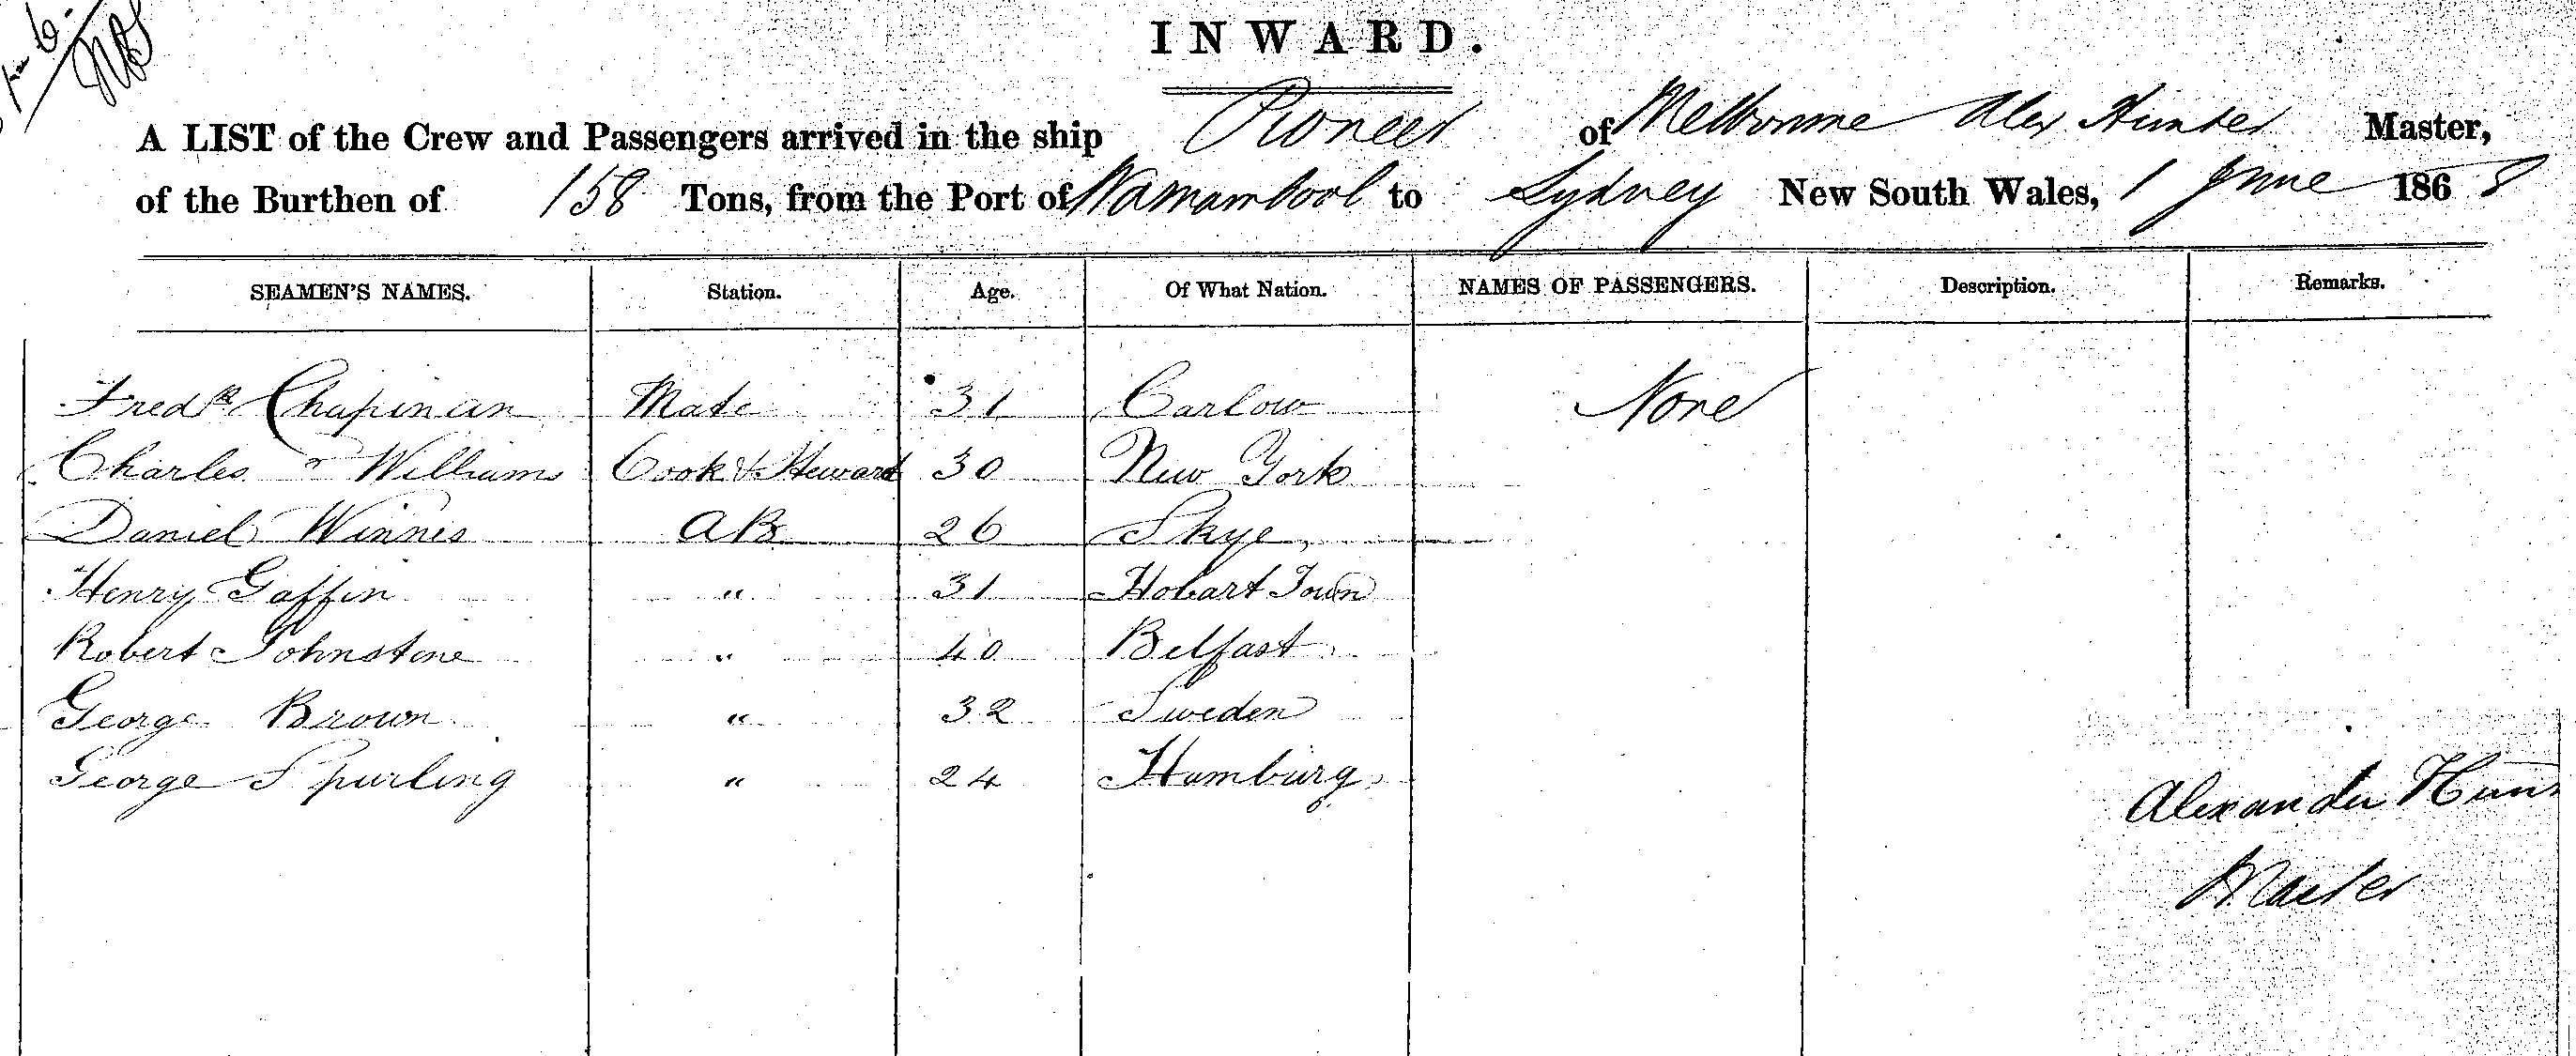 INWARD.
A LIST of the Crew and Passengers arrived in the ship Pioneer of Melbourne Alex Hunter Master,
of the Burthen of 158 Tons, from the Port of Warnambool to Sydney New South Wales, 1 June 1868
SEAMEN'S NAMES. Station. Age. Of What Nation. NAMES OF PASSENGERS. Description. Remarks.
Fredk Chapman Mate 31 Carlow None
Charles Williams Cook & Steward 30 New York
Daniel Winnis AB 26 Skye
Henry Gaffin " 31 Hobart Town
Robert Johnstone " 40 Belfast
George Brown " 32 Sweden
George Spurling " 24 Hamburg
Alexander Hun
Master